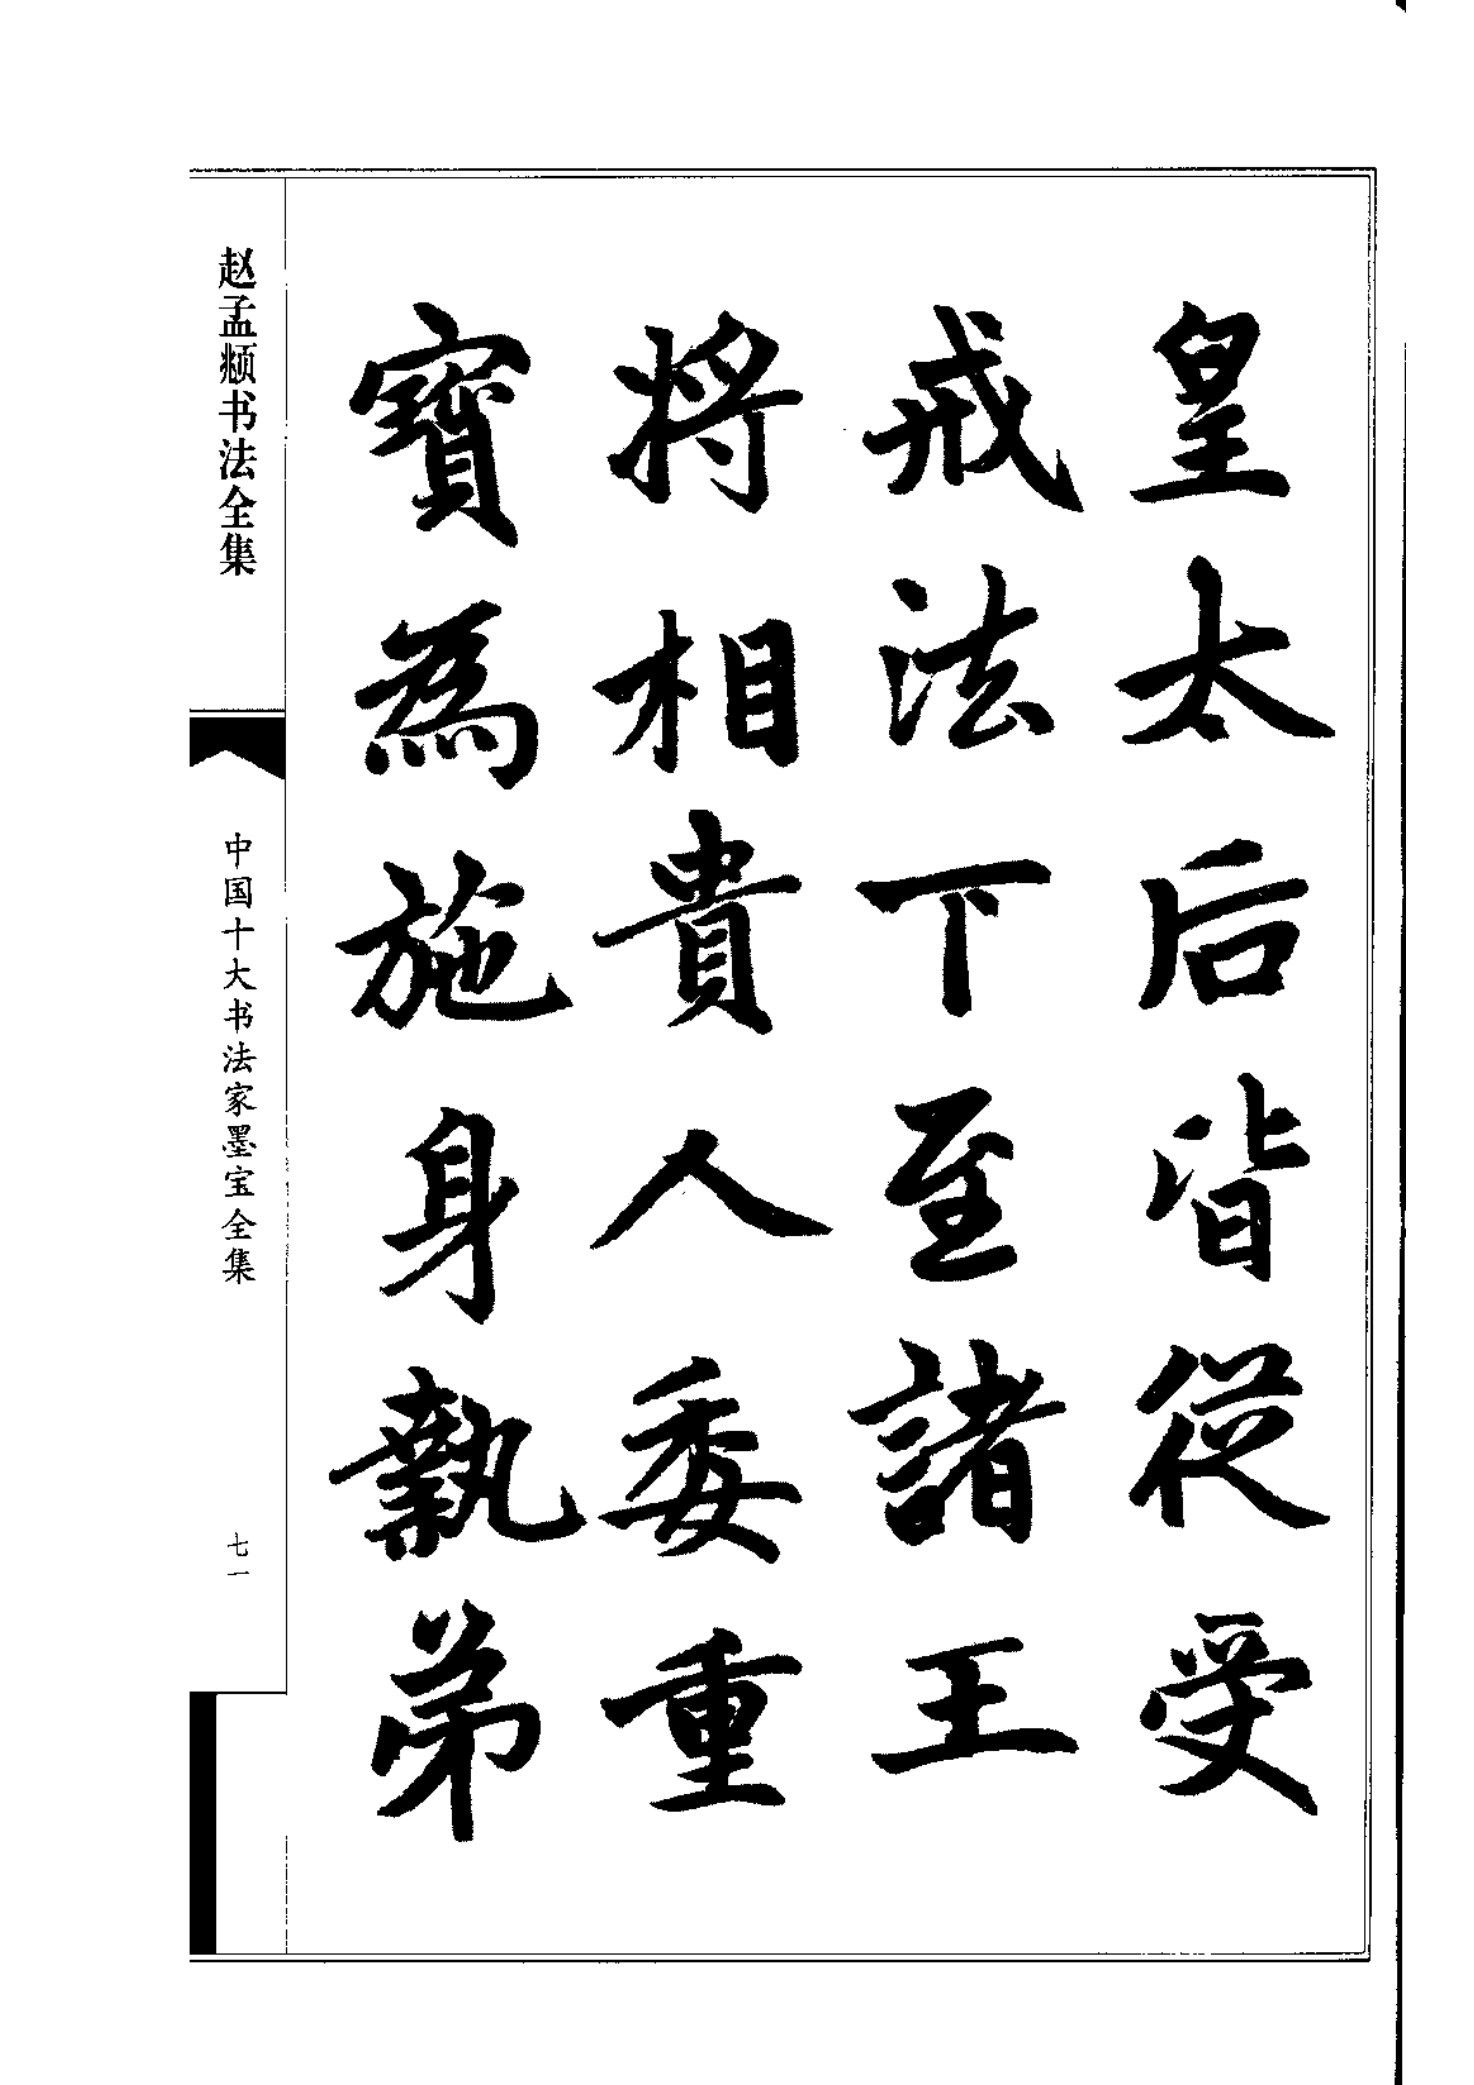 皇太后皆從受
戒法下至諸王
將相貴人委重
寶為施身執弟
赵孟頫书法全集
中国十大书法家墨宝全集
七一